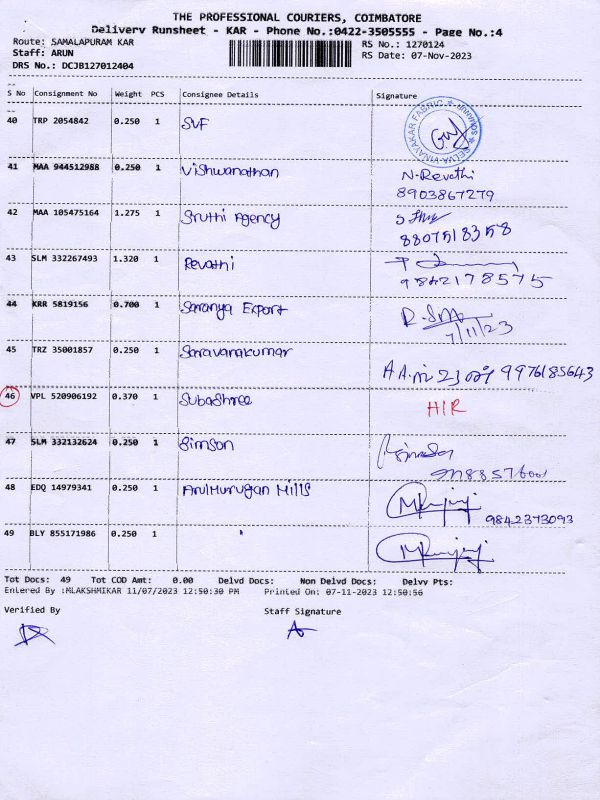 THE PROFESSIONAL COURIERS, COIMBATORE
Delivery Runsheet - KAR - Phone No.:0422-3505555 - Page No.:4
Route: SAMALAPURAM KAR
RS No.: 1270124
Staff: ARUN
RS Date: 07-Nov-2023
DRS No.: DCJB127012404
S No Consignment No Weight PCS Consignee Details Signature
40 TRP 2054842 0.250 1 SVF
SELVA-VINAYAKAR FABRIC
41 MAA 944512988 0.250 1 Vishwanathan N-Revathi
8903867279
42 MAA 105475164 1.275 1 Sruthi Agency
8807518358
43 SLM 332267493 1.320 1 Revathi
9842178575
44 KRR 5819156 0.700 1 Saranya Export
7/11/23
45 TRZ 35001857 0.250 1 Saravanakumar 9976185643
46 VPL 520906192 0.370 1 Subashree HIR
47 SLM 332132624 0.250 1 Simson
48 EDQ 14979341 0.250 1 ArulMurugan Mills
9842373093
49 BLY 855171986 0.250 1
Tot Docs: 49 Tot COD Amt: 0.00 Delvd Docs: Non Delvd Docs: Delvv Pts:
Entered By :MLAKSHMIKAR 11/07/2023 12:50:30 PM Printed On: 07-11-2023 12:50:56
Verified By Staff Signature